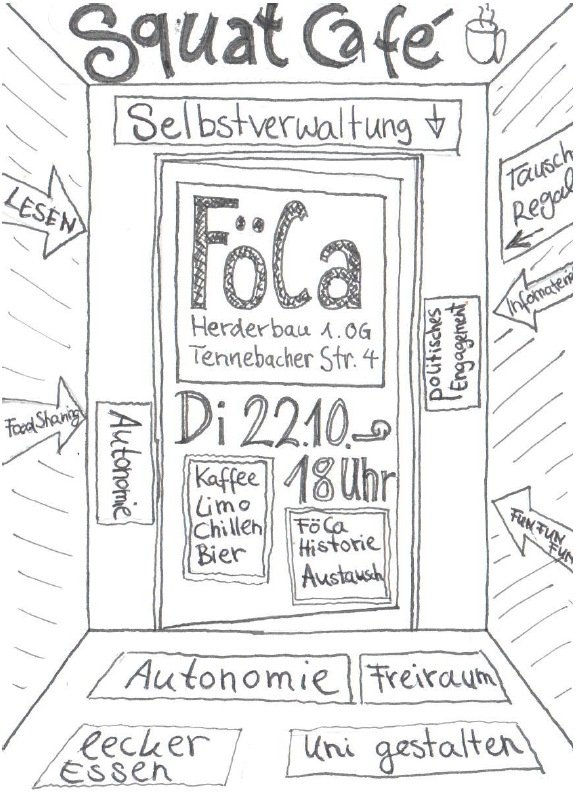 Squat Café
Selbstverwaltung
LESEN
Tausch
Regal
FöCa
Herderbau 1.OG
Tennebacher Str. 4
Infomateri
politisches
Engagement
Food Sharing
Autonomie
Di 22.10.
18 Uhr
Kaffee
Limo
Chillen
Bier
FöCa
Historie
Austausch
FUN FUN
FUN
Autonomie
Freiraum
lecker
Essen
Uni gestalten